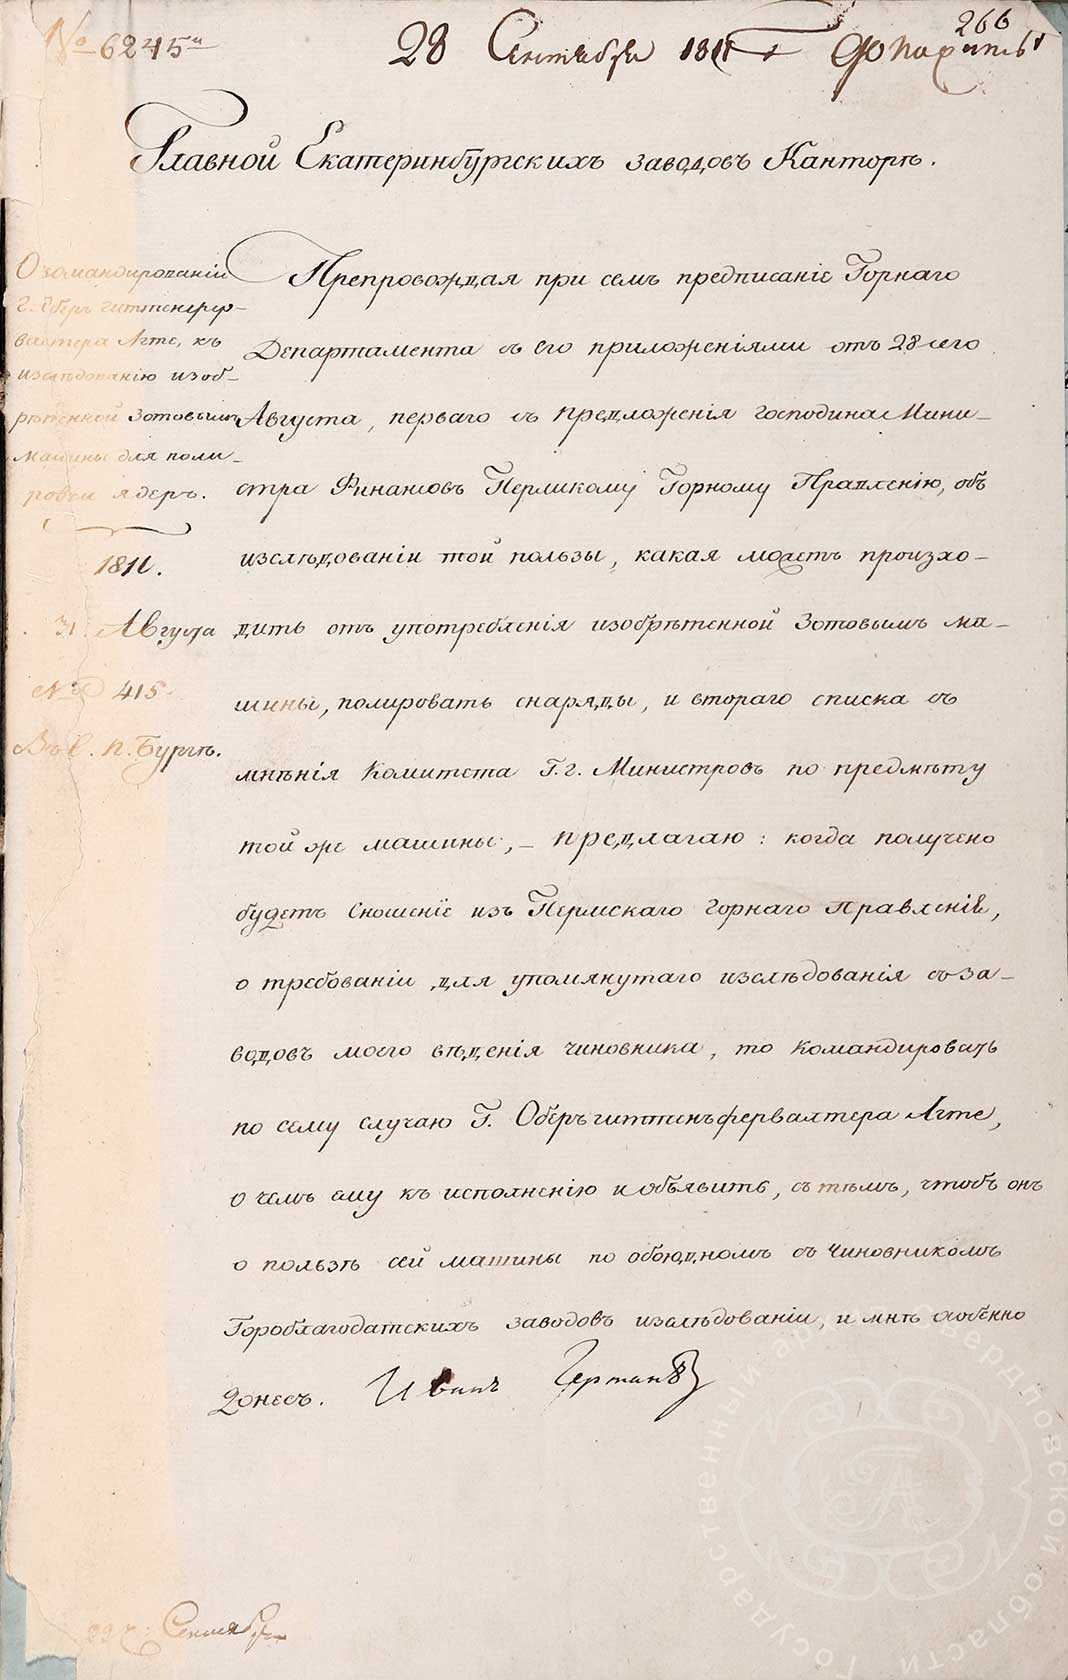 266
№ 6245й 28 Сентября 1811 доложить
Главной Екатеринбургскихъ заводовъ Канторѣ.
О командированіи
г. Оберъ гиттенфер-
валтера Агте, къ
изслѣдованію изоб-
рѣтенной Зотовымъ
машины для поли-
ровки ядеръ.
1811.
31 Августа
№ 415
Въ С. П. Бургѣ.
Препровождая при семъ предписаніе Горнаго
Департамента съ его приложеніями отъ 28 сего
Августа, перваго съ предложенія господина Мини-
стра Финансовъ Пермскому Горному Правленію, объ
изслѣдованіи той пользы, какая можетъ произхо-
дить отъ употребленія изобрѣтенной Зотовымъ ма-
шины, полировать снаряды, и втораго списка съ
мнѣнія Комитета Г. г. Министровъ по предмѣту
той же машины, – предлагаю: когда получено
будетъ сношеніе изъ Пермскаго горнаго Правленія,
о требованіи для упомянутаго изслѣдованія съ за-
водовъ моего вѣденія чиновника, то командировать
по сему случаю Г. Оберъ гиттенъфервалтера Агте,
о чемъ ему къ исполненію и объявить, съ тѣмъ, чтобъ онъ
о пользѣ сей машины по обоюдномъ съ чиновникомъ
Гороблагодатскихъ заводовъ изслѣдованіи, и мнѣ особенно
донесъ. Иванъ Германъ
Сентября
Государственный архив Свердловской области